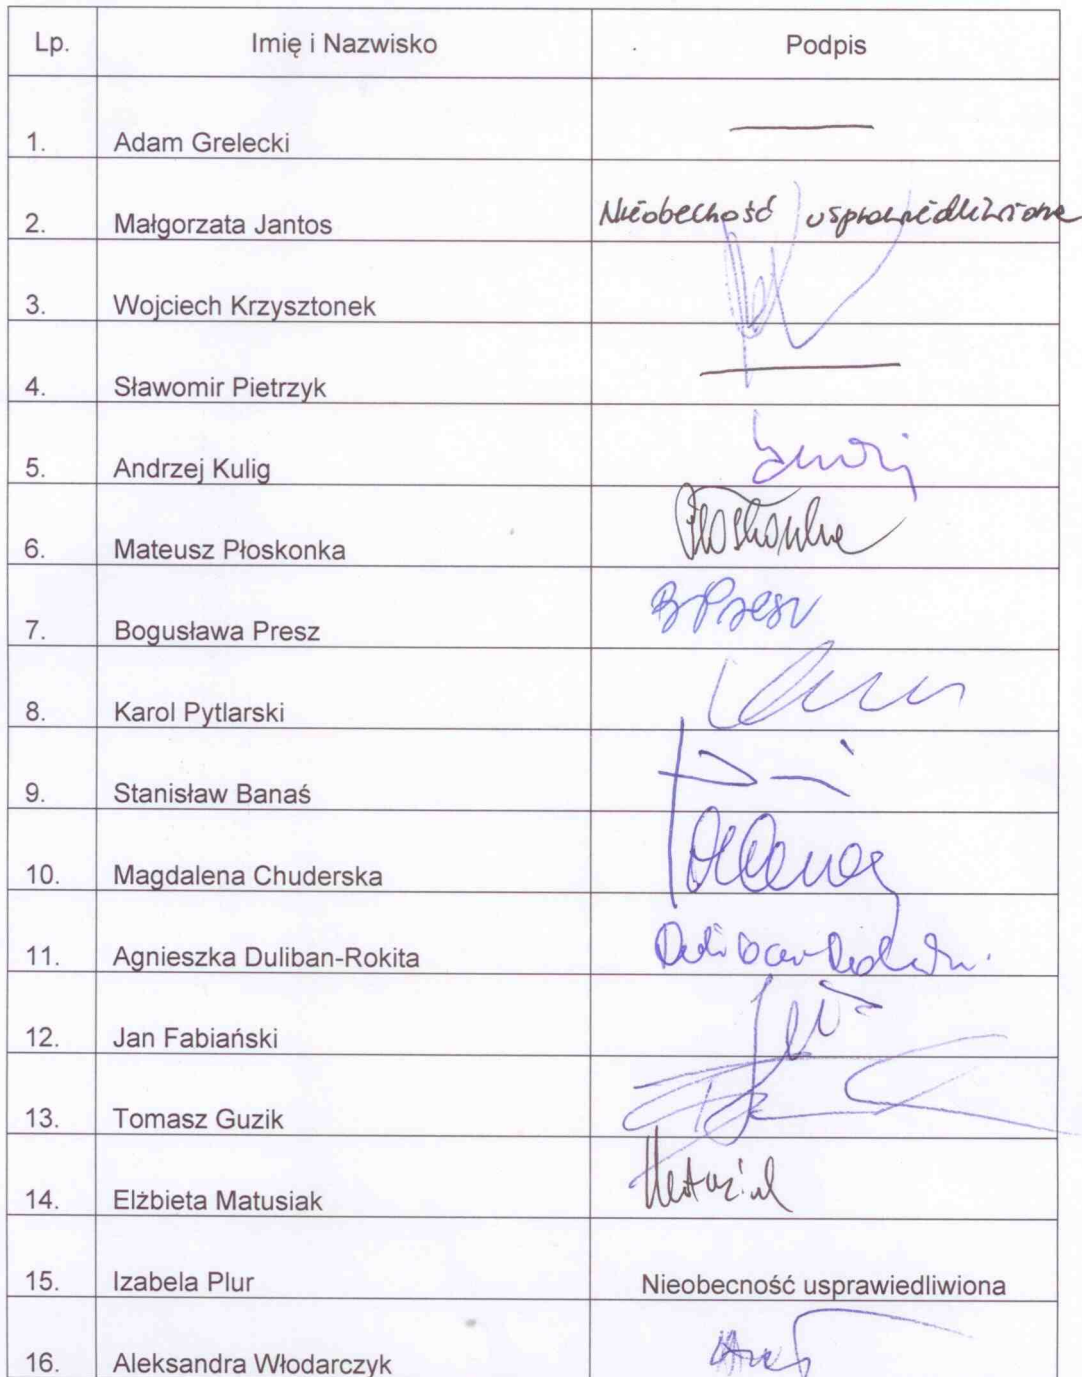 Lp. Imię i Nazwisko Podpis
1. Adam Grelecki
2. Małgorzata Jantos Nieobecność usprawiedliwiona
3. Wojciech Krzysztonek
4. Sławomir Pietrzyk
5. Andrzej Kulig
6. Mateusz Płoskonka Płoskonka
7. Bogusława Presz BPresz
8. Karol Pytlarski
9. Stanisław Banaś
10. Magdalena Chuderska
11. Agnieszka Duliban-Rokita Duliban-Rokita
12. Jan Fabiański
13. Tomasz Guzik
14. Elżbieta Matusiak
15. Izabela Plur Nieobecność usprawiedliwiona
16. Aleksandra Włodarczyk